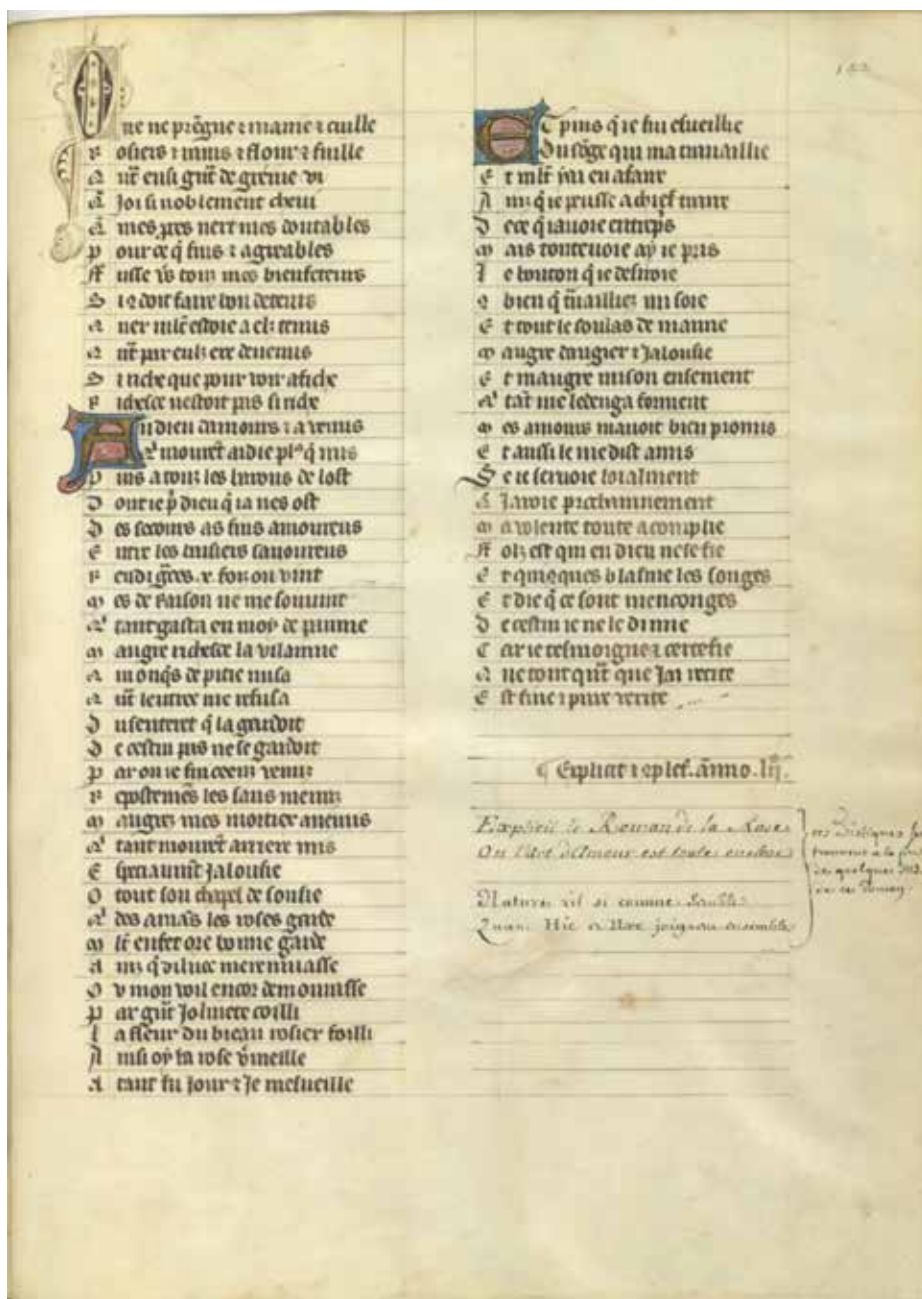 Que ne prēgne ⁊ maine ⁊ cuille
Rosiers ⁊ rains ⁊ flour ⁊ fuille
Qn̄t ensi gn̄t de greme vi
Q̄ joi si noblement chevi
Q̄ mes pres nert mes doutables
Pour ce q̄ fuis ⁊ agreables
Fusse v̄s tous mes bienfeteurs
doit faire bon deteurs
ml̄t estoie a els tenus
Qn̄t par euls ere devenus
Si riche que pour voir afiche
Richesce nestoit pas si riche
Au dieu damours ⁊ a venus
mouret aidie pl᷒ q̄ nus
Puis a tous les barons de lost
Dont ie p̄ dieu q̄ ia nes ost
Des secours as fins amoureus
Entre les baisiers savoureus
Rendi grēs .x. fois ou vint
Mes de Raison ne me souvint
tant gasta en moy de paine
Maugre richesce la vilainne
de pitie nusa
Qn̄t lentree me refusa
Du senteret q̄ la gardoit
De cestui pas ne se gardoit
Par ou ie sui ceens venus
Repostemēs les saus menus
Maugrez mes mortiex anemis
tant mouret arriere mis
jalousie
O tout son chapel de soussie
des amās les roses garde
bonne garde
Ains q̄ diluec me remuasse
Ou mon voil encor demourasse
Par gn̄t joliuete coilli
La fleur du biean rosier foilli
Ainsi oy la rose v̄meille
A tant fu jour ⁊ je mesueille
Et puis q̄ ie fui esueillie
Du sōge qui ma travaillie
Et ml̄t jai eu afaire
Ains q̄ ie peusse a chief traire
De ce q̄ iauoie entrep̄s
Mais toutevoie ay ie pris
Le bouton q̄ ie desiroie
bien q̄ travailliez mi soie
Et tout le soulas de mamie
Maugre dangier ⁊ jalousie
Et maugre raison ensement
tāt me ledenga forment
Mes amours mauoit bien promis
Et aussi le me dist amis
Se ie seruoie loialment
Q̄ jaroie prochainnement
Ma volente toute acomplie
Folz est qui en dieu ne se fie
Et quiqques blasme les songes
Et die q̄ ce sont menconges
De cestui ie ne le di mie
Car ie tesmoigne ⁊ certefie
Que tout quāt que jai recite
Est fine ⁊ pure verite
Explicit ⁊ āmo .lij.
Explicit le Roman de la Rose
Ou l'Art d'Amour est toute enclose
Nature rit si comme semble
Quant Hic et Hec joignent ensemble
ces Distiques se
trouvent a la fin
de quelques MSS.
de ce Roman.